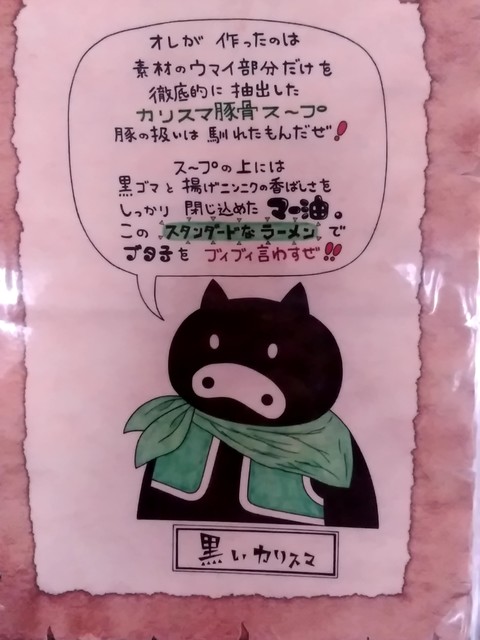 オレが 作ったのは
素材のウマイ部分だけを
徹底的に 抽出した
カリスマ豚骨ス〜プ
豚の扱いは 馴れたもんだぜ!
ス〜プの上には
黒ゴマと 揚げニンニクの香ばしさを
しっかり 閉じ込めた マー油。
この スタンダードな ラーメン で
ブタ子を ブィブィ言わすぜ!!
黒いカリスマ